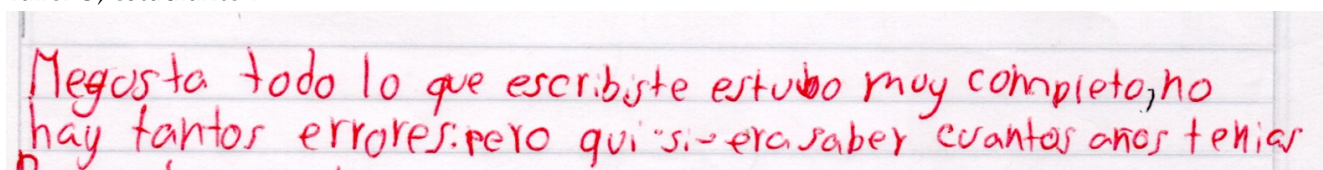 Megusta todo lo que escribiste estubo muy completo, no
hay tantos errores. pero qui si-era saber cuantos años tenias